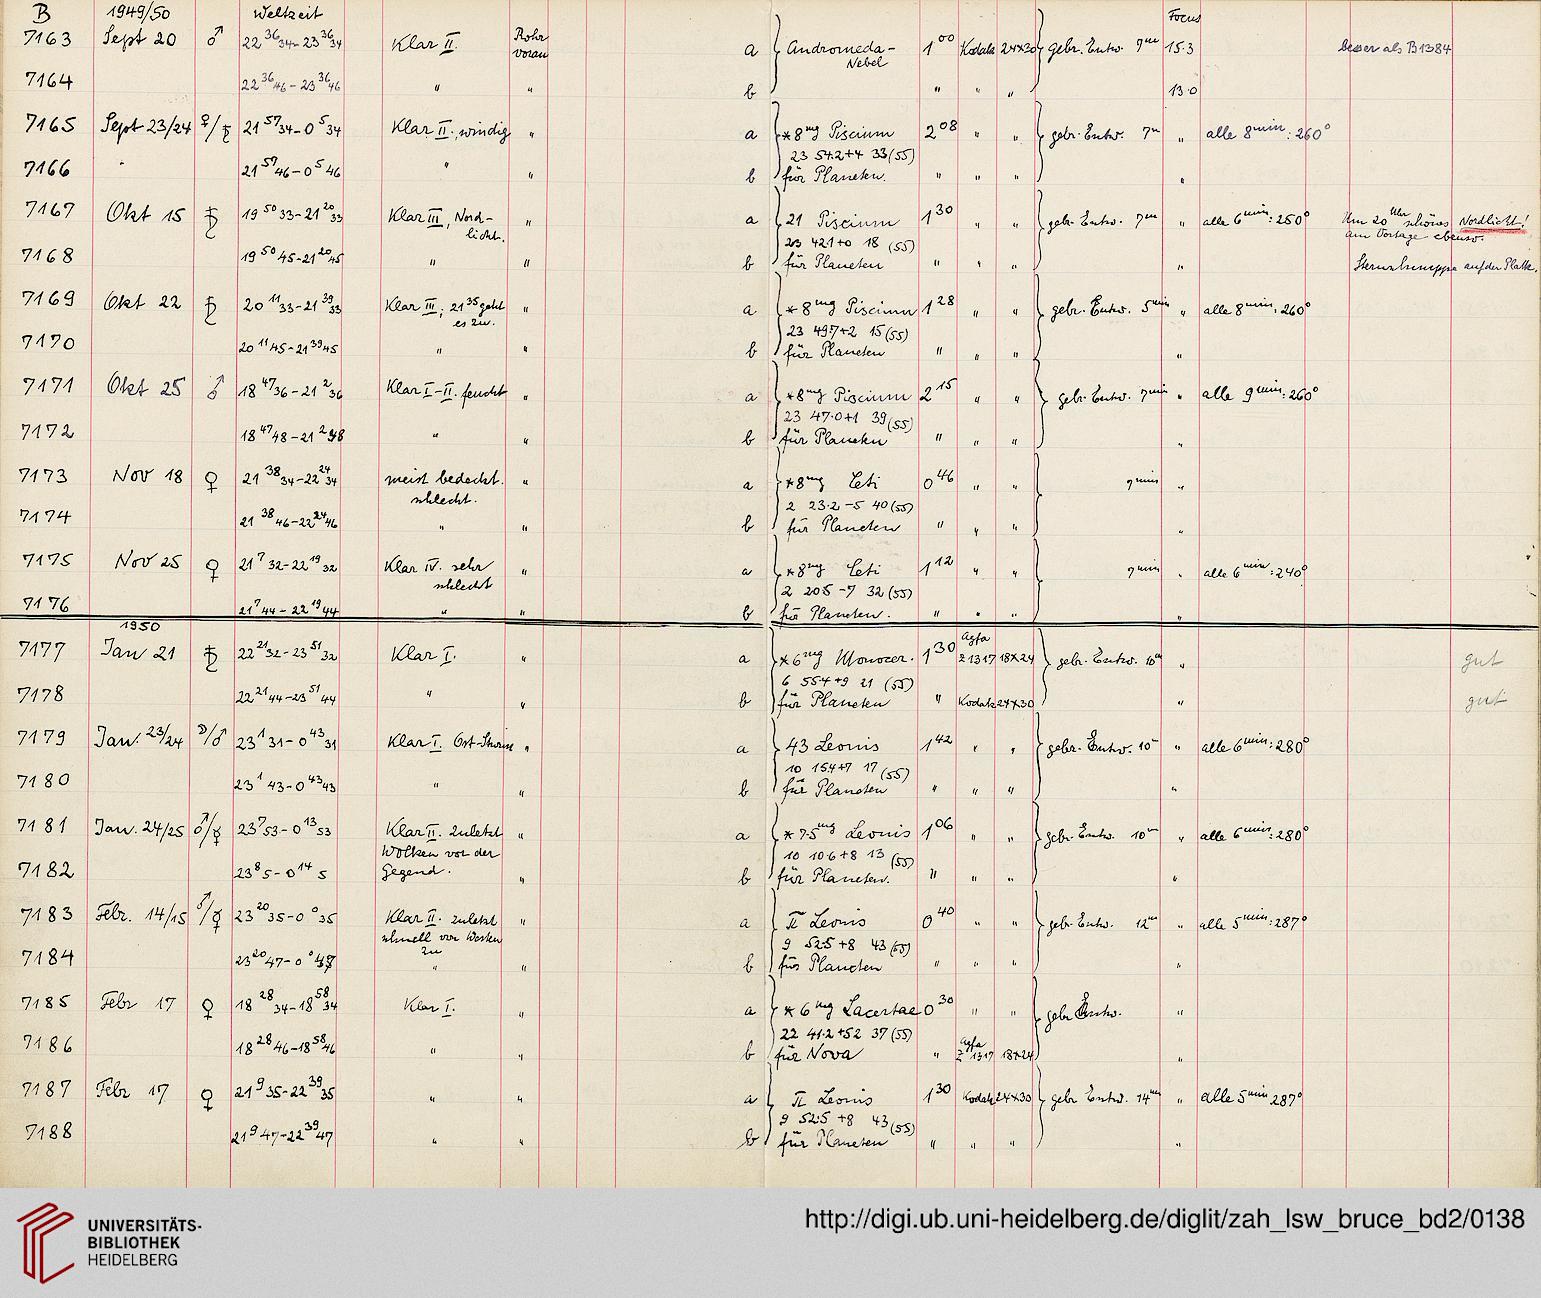 B 1949/50 Weltzeit Focus
7163 Sept 20 ♂ 22 36 34 - 23 36 34 Klar II. Rohr voran a Andromeda-Nebel 1 00 Kodak 24x30 gebr. Entw. 7m 15.3 besser als B1384
7164 22 36 46 - 23 36 46 " " b " " " 13.0
7165 Sept 23/24 ♀/♄ 21 57 34 - 0 5 34 Klar II. windig " a *8mg Piscium 2 08 " " gebr. Entw. 7m " alle 8min: 260°
23 54.2 +4 33 (55)
7166 21 57 46 - 0 5 46 " " b für Planeten. " " " "
7167 Okt 15 ♄ 19 50 33 - 21 20 33 Klar III, Nordlicht. " a 21 Piscium 1 30 " " gebr. Entw. 7m " alle 6min: 250° Um 20 Uhr schönes Nordlicht!
am Vortage ebenso.
23 42.1 +0 18 (55)
7168 19 50 45 - 21 20 45 " " b für Planeten " " " " auf der Platte.
7169 Okt 22 ♄ 20 11 33 - 21 39 33 Klar III; 21 35 geht es zu. " a *8mg Piscium 1 28 " " gebr. Entw. 5min " alle 8min: 260°
23 49.7 +2 15 (55)
7170 20 11 45 - 21 39 45 " " b für Planeten " " " "
7171 Okt 25 ♂ 18 47 36 - 21 2 36 Klar I-II. feucht " a *8mg Piscium 2 15 " " gebr. Entw. 7min " alle 9min: 260°
23 47.0 +1 39 (55)
7172 18 47 48 - 21 2 48 " " b für Planeten " " " "
7173 Nov 18 ♀ 21 38 34 - 22 24 34 meist bedeckt. schlecht. " a *8mg Ceti 0 46 " " 7min "
2 23.2 -5 40 (55)
7174 21 38 46 - 22 24 46 " " b für Planeten " " " "
7175 Nov 25 ♀ 21 7 32 - 22 19 32 Klar IV. sehr schlecht " a *8mg Ceti 1 12 " " 7min " alle 6min: 240°
2 20.5 -7 32 (55)
7176 21 7 44 - 22 19 44 " " b für Planeten. " " " "
1950
7177 Jan 21 ♄ 22 21 32 - 23 51 32 Klar I. " a *6mg Monocer. 1 30 Agfa Z1317 18x24 gebr. Entw. 10m " gut
6 55.4 +9 21 (55)
7178 22 21 44 - 23 51 44 " " b für Planeten " Kodak 24x30 " gut
7179 Jan. 23/24 ☽/♂ 23 1 31 - 0 43 31 Klar I. Ost-Sturm " a 43 Leonis 1 42 " " gebr. Entw. 10m " alle 6min: 280°
10 15.4 +7 17 (55)
7180 23 1 43 - 0 43 43 " " b für Planeten " " " "
7181 Jan. 24/25 ♂/☿ 23 7 53 - 0 13 53 Klar II. zuletzt Wolken vor der Gegend. " a *7.5mg Leonis 1 06 " " gebr. Entw. 10m " alle 6min: 280°
10 10.6 +8 13 (55)
7182 23 8 5 - 0 14 5 " b für Planeten. " " " "
7183 Febr. 14/15 ♂/☿ 23 20 35 - 0 0 35 Klar II. zuletzt schnell von Westen zu " a π Leonis 0 40 " " gebr. Entw. 12m " alle 5min: 287°
9 52.5 +8 43 (55)
7184 23 20 47 - 0 0 47 " " b für Planeten " " " "
7185 Febr 17 ♀ 18 28 34 - 18 58 34 Klar I. " a *6mg Lacertae 0 30 " " gebr Entw. "
22 41.2 +52 37 (55)
7186 18 28 46 - 18 58 46 " " b für Nova " Agfa Z 1317 18x24 "
7187 Febr 17 ♀ 21 9 35 - 22 39 35 " " a π Leonis 1 30 Kodak 24x30 gebr Entw. 14m " alle 5min 287°
9 52.5 +8 43 (55)
7188 21 9 47 - 22 39 47 " " b für Planeten " " " "
UNIVERSITÄTS-
BIBLIOTHEK
HEIDELBERG
http://digi.ub.uni-heidelberg.de/diglit/zah_lsw_bruce_bd2/0138